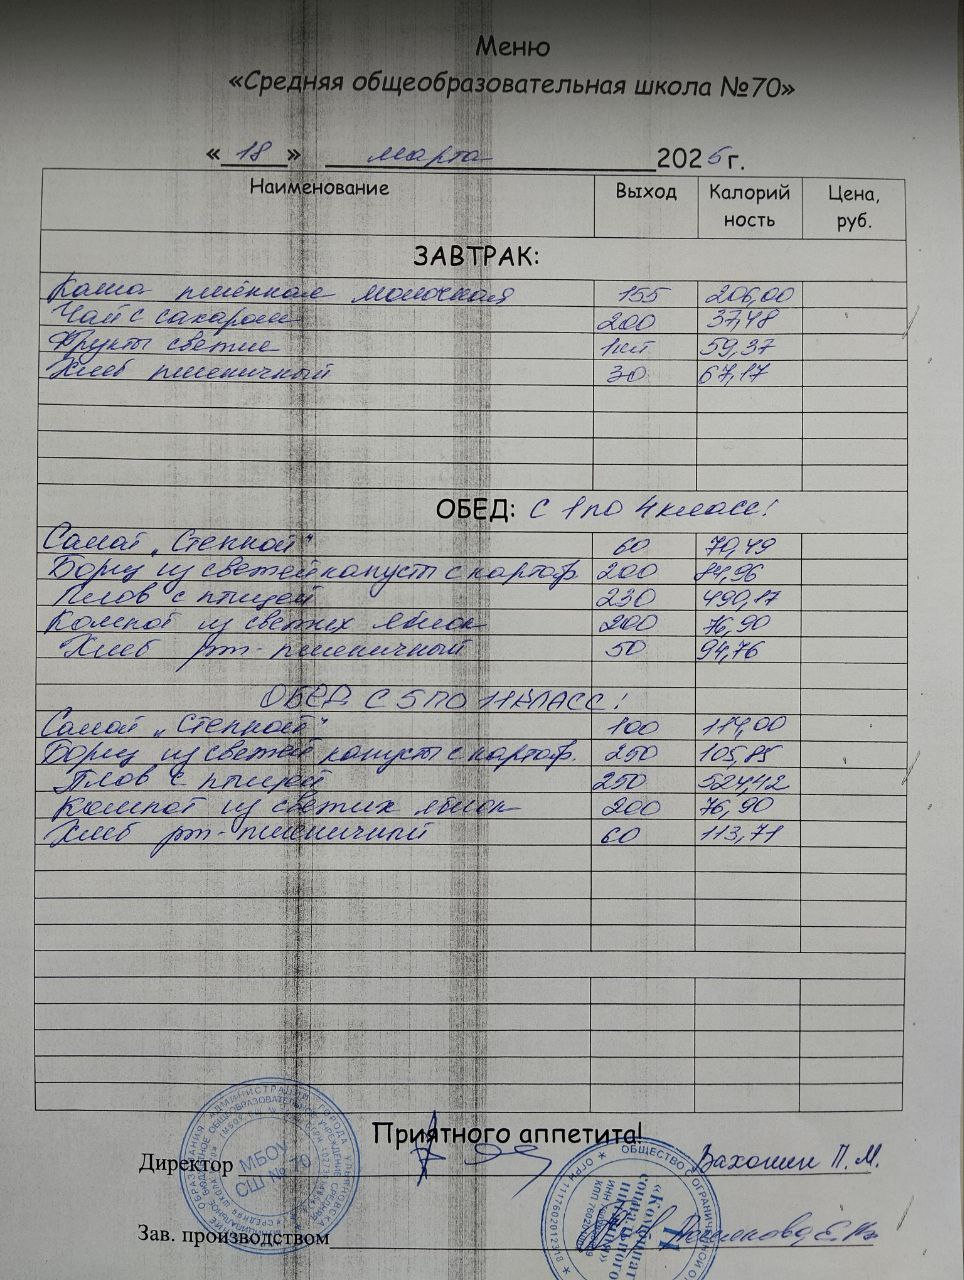 Меню
«Средняя общеобразовательная школа №70»
«18» марта 2025 г.
Наименование Выход Калорийность Цена, руб.
ЗАВТРАК:
Каша пшённая молочная 155 206,00
Чай с сахаром 200 37,48
Фрукты свежие 1шт 59,37
Хлеб пшеничный 30 67,17
ОБЕД: С 1 по 4 класс!
Салат „Степной" 60 70,49
Борщ из свежей капусты с картоф. 200 84,96
Плов с птицей 230 490,17
Компот из свежих яблок 200 76,90
Хлеб рж-пшеничный 50 94,76
ОБЕД С 5 ПО 11 КЛАСС!
Салат „Степной" 100 117,00
Борщ из свежей капусты с картоф. 250 105,85
Плов с птицей 250 524,12
Компот из свежих яблок 200 76,90
Хлеб рж-пшеничный 60 113,71
Приятного аппетита!
Директор П.М.
Зав. производством
МБОУ
СШ № 70
ОБЩЕСТВО С ОГРАНИЧЕННОЙ
«Комбинат
социального
питания»